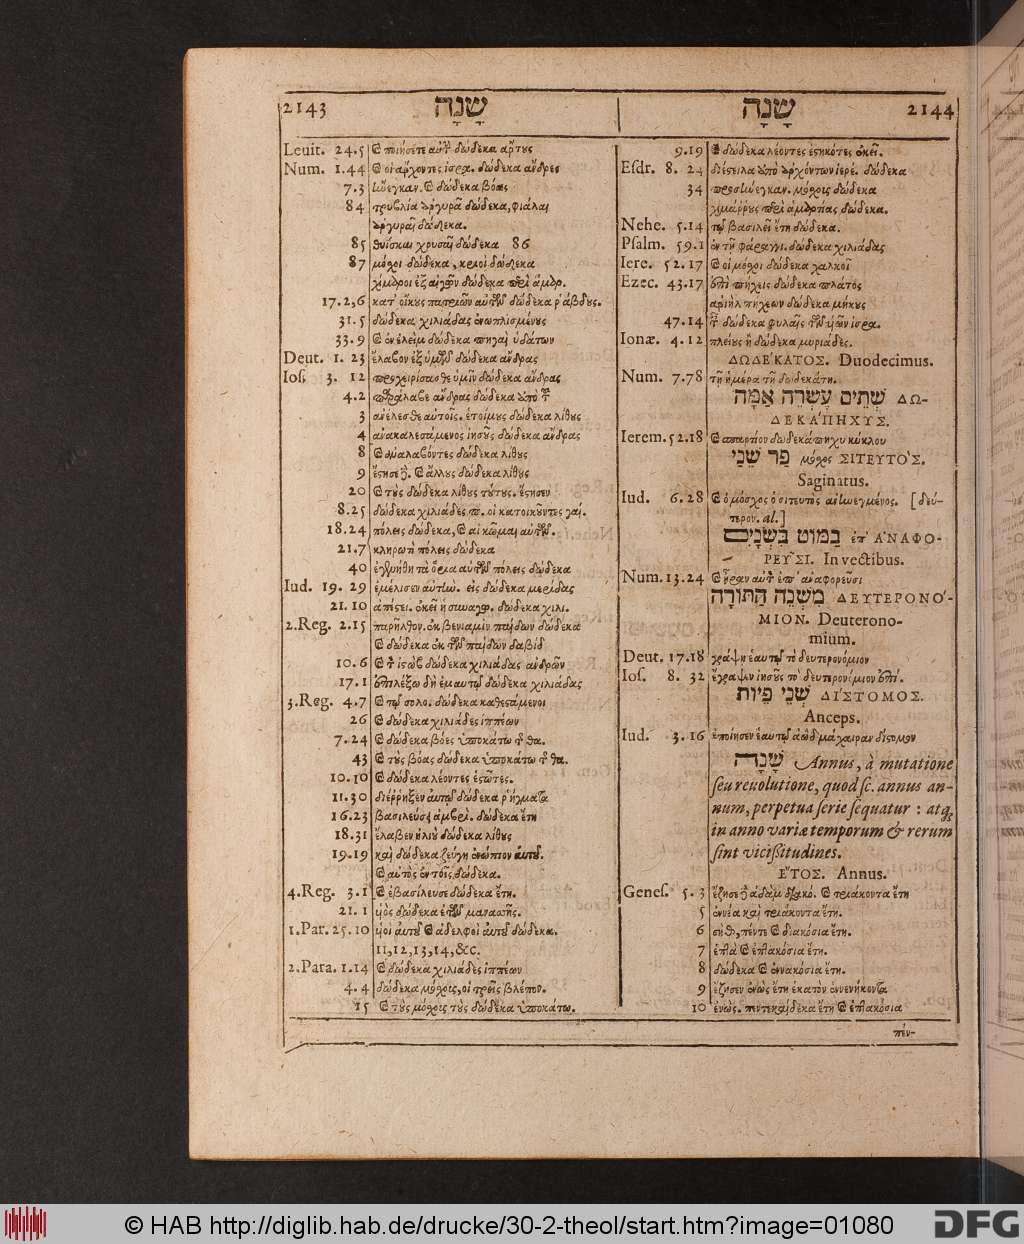 2143 שָׁנָה
Leuit. 24.5 ϗ ποιήσετε αὐτ δώδεκα ἄρτους
Num. 1.44 ϗ οἱ ἄρχοντες ἰσρα. δώδεκα ἄνδρες
7.3 ἤνεγκαν. ϗ δώδεκα βόας
84 τρυβλία ἀργυρᾶ δώδεκα, φιάλαι
ἀργυραῖ δώδεκα.
85 θυίσκαι χρυσαῖ δώδεκα 86
87 μόσχοι δώδεκα, κριοὶ δώδεκα
χίμαροι ἐξ αἰγῶν δώδεκα περὶ ἁμαρ.
17.2,6 κατ' οἴκους πατριῶν αὐτῶν δώδεκα ῥάβδους.
31.5 δώδεκα χιλιάδας ἐνωπλισμένους
33.9 ϗ ἐν ἐλεὶμ δώδεκα πηγαὶ ὑδάτων
Deut. 1.23 ἔλαβον ἐξ ὑμῶν δώδεκα ἄνδρας
Ios. 3.12 προχειρίσασθε ὑμῖν δώδεκα ἄνδρας
4.2 παράλαβε ἄνδρας δώδεκα ἀπὸ τ
3 ἀνέλεσθε αὐτοῖς. ἑτοίμους δώδεκα λίθους
4 ἀνακαλεσάμενος ἰησοῦς δώδεκα ἄνδρας
8 ϗ λαβόντες δώδεκα λίθους
9 ἔστησε ϗ ἄλλους δώδεκα λίθους
20 ϗ τοὺς δώδεκα λίθους τούτους. ἔστησεν
8.25 δώδεκα χιλιάδες π. οἱ κατοικοῦντες γαί.
18.24 πόλεις δώδεκα, ϗ αἱ κῶμαι αὐτῶν.
21.7 κληρωτὶ πόλεις δώδεκα
40 ἐγενήθη τὰ ὅρια αὐτῶν πόλεις δώδεκα
Iud. 19.29 ἐμέλισεν αὐτήν. εἰς δώδεκα μερίδας
21.10 ἀπέστει. ἐκεῖ ἡ συναγω. δώδεκα χιλι.
2.Reg. 2.15 παρῆλθον. ἐκ βενιαμὶν παίδων δώδεκα
ϗ δώδεκα ἐκ τῶν παίδων δαβίδ
10.6 ϗ τ ἰστὼβ δώδεκα χιλιάδας ἀνδρῶν
17.1 ἐπιλέξω δὴ ἐμαυτῷ δώδεκα χιλιάδας
3.Reg. 4.7 ϗ τῷ σολο. δώδεκα καθεσταμένοι
26 ϗ δώδεκα χιλιάδες ἱππέων
7.24 ϗ δώδεκα βόες ὑποκάτω τ θα.
43 ϗ τοὺς βόας δώδεκα ὑποκάτω τ θα.
10.10 ϗ δώδεκα λέοντες ἑστῶτες.
11.30 διέρρηξεν αὐτὸ δώδεκα ῥήγματα
16.23 βασιλεύει ἀμβρὶ. δώδεκα ἔτη
18.31 ἔλαβεν ἠλιοὺ δώδεκα λίθους
19.19 καὶ δώδεκα ζεύγη ἐνώπιον αὐτοῦ.
ϗ αὐτὸς ἐν τοῖς δώδεκα.
4.Reg. 3.1 ϗ ἐβασίλευσε δώδεκα ἔτη.
21.1 υἱὸς δώδεκα ἐτῶν μανασσῆς.
1.Par. 25.10 υἱοὶ αὐτοῦ ϗ ἀδελφοὶ αὐτοῦ δώδεκα.
11,12,13,14,&c.
2.Para. 1.14 ϗ δώδεκα χιλιάδες ἱππέων
4.4 δώδεκα μόσχους, οἱ τρεῖς βλέπον.
15 ϗ τοὺς μόσχους τοὺς δώδεκα ὑποκάτω.
שָׁנָה 2144
9.19 ϗ δώδεκα λέοντες ἑστηκότες ἐκεῖ.
Esdr. 8.24 διέστειλα ἀπὸ ἀρχόντων ἱερέ. δώδεκα
34 προσήνεγκαν. μόσχους δώδεκα
χιμάρρους περὶ ἁμαρτίας δώδεκα.
Nehe. 5.14 τῷ βασιλεῖ ἔτη δώδεκα.
Psalm. 59.1 ἐν τῇ φάραγγι. δώδεκα χιλιάδας
Iere. 52.17 ϗ οἱ μόσχοι δώδεκα χαλκοῖ
Ezec. 43.17 ἐπὶ πήχεις δώδεκα πλάτος
ἀριὴλ πήχεων δώδεκα μήκους
47.14 τ δώδεκα φυλαῖς τῶν υἱῶν ἰσρα.
Ionæ. 4.12 πλείους ἢ δώδεκα μυριάδες.
ΔΩΔΕΚΑΤΟΣ. Duodecimus.
Num. 7.78 τῇ ἡμέρᾳ τῇ δωδεκάτῃ.
שְׁתֵּים עֶשְׂרֵה אַמָּה ΔΩ-
ΔΕΚΑΠΗΧΥΣ.
Ierem. 52.18 ϗ σπαρτίον δωδεκάπηχυ κύκλου
פַר שֵׁנִי μόσχος ΣΙΤΕΥΤΟΣ.
Saginatus.
Iud. 6.28 ϗ ὁ μόσχος ὁ σιτευτὸς ἀνηνεγμένος. [δεύ-
τερον. al.]
בַמּוֹט בִּשְׁנָיִם ἐπ' ἈΝΑΦΟ-
ΡΕΥΣΙ. In vectibus.
Num. 13.24 ϗ ἦραν αὐτ ἐπ' ἀναφορεῦσι
מִשְׁנֵה הַתּוֹרָה ΔΕΥΤΕΡΟΝΟ-
ΜΙΟΝ. Deuterono-
mium.
Deut. 17.18 γράψῃ ἑαυτῷ τὸ δευτερονόμιον
Ios. 8.32 ἔγραψεν ἰησοῦς τὸ δευτερονόμιον ἐπί.
שְׁנֵי פֵיוֹת ΔΙΣΤΟΜΟΣ.
Anceps.
Iud. 3.16 ἐποίησεν ἑαυτῷ ἀὼδ μάχαιραν δίστομον
שָׁנָה Annus, à mutatione
seu reuolutione, quod sc. annus an-
num, perpetua serie sequatur : atq;
in anno variæ temporum & rerum
sint vicißitudines.
ἜΤΟΣ. Annus.
Genes. 5.3 ἔζησε ἀδὰμ διακό. ϗ τριάκοντα ἔτη
5 ἐννέα καὶ τριάκοντα ἔτη.
6 σὴθ, πέντε ϗ διακόσια ἔτη.
7 ἑπτὰ ϗ ἑπτακόσια ἔτη.
8 δώδεκα ϗ ἐννακόσια ἔτη.
9 ἔζησεν ἐνὼς ἔτη ἑκατὸν ἐννενήκοντα
10 ἐνὼς. πεντεκαίδεκα ἔτη ϗ ἑπτακόσια
πέν-
© HAB http://diglib.hab.de/drucke/30-2-theol/start.htm?image=01080
DFG